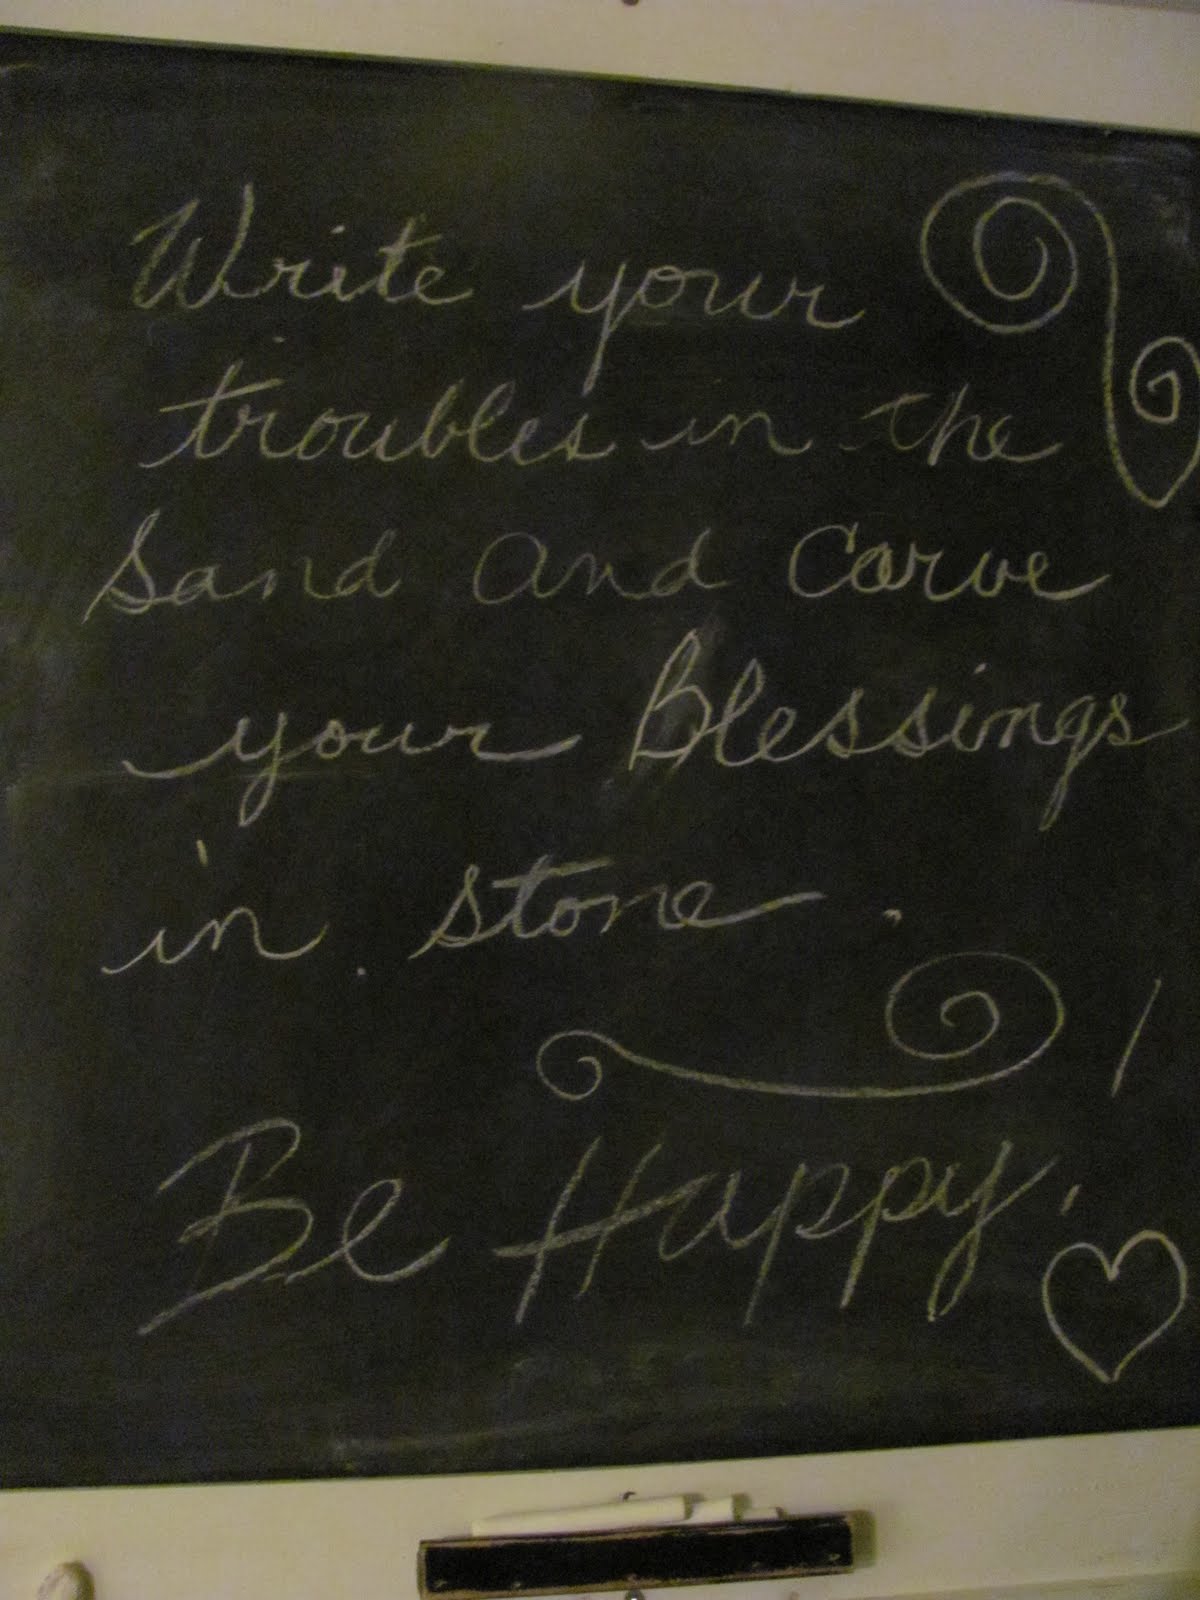 Write your
troubles in the
Sand and Carve
your Blessings
in stone.
Be Happy!